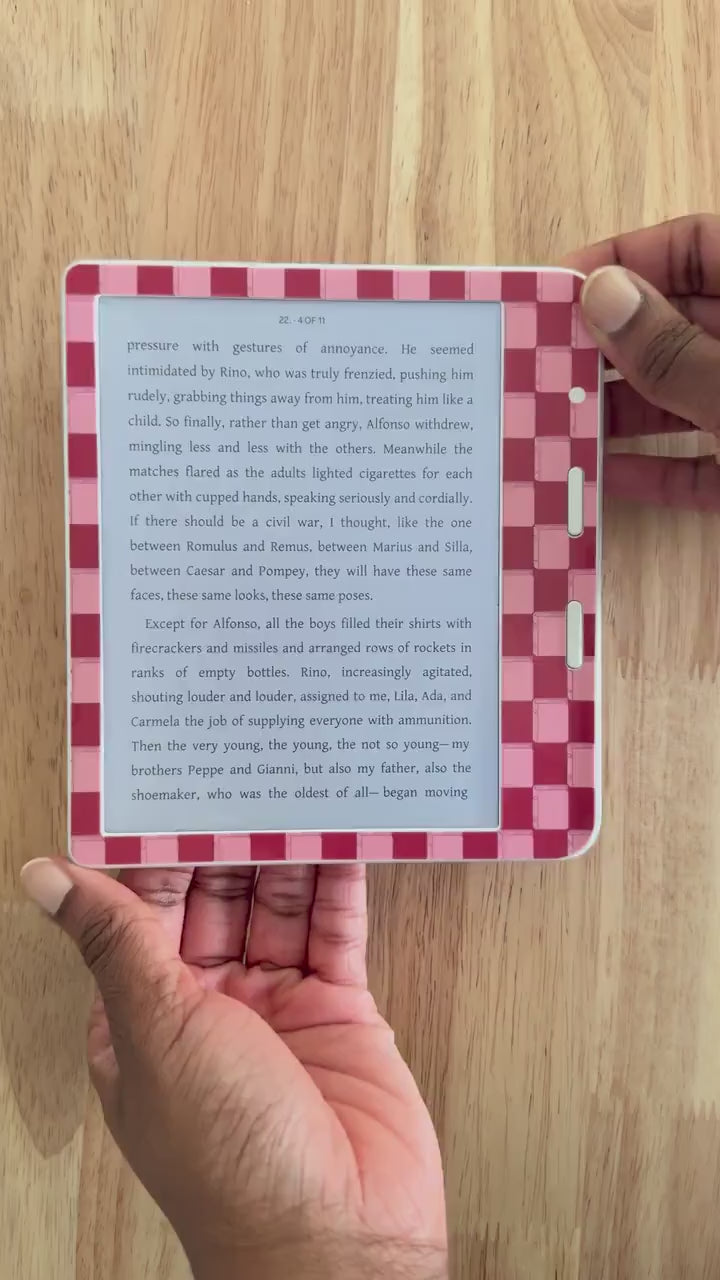 22. - 4 OF 11
pressure with gestures of annoyance. He seemed
intimidated by Rino, who was truly frenzied, pushing him
rudely, grabbing things away from him, treating him like a
child. So finally, rather than get angry, Alfonso withdrew,
mingling less and less with the others. Meanwhile the
matches flared as the adults lighted cigarettes for each
other with cupped hands, speaking seriously and cordially.
If there should be a civil war, I thought, like the one
between Romulus and Remus, between Marius and Silla,
between Caesar and Pompey, they will have these same
faces, these same looks, these same poses.
Except for Alfonso, all the boys filled their shirts with
firecrackers and missiles and arranged rows of rockets in
ranks of empty bottles. Rino, increasingly agitated,
shouting louder and louder, assigned to me, Lila, Ada, and
Carmela the job of supplying everyone with ammunition.
Then the very young, the young, the not so young—my
brothers Peppe and Gianni, but also my father, also the
shoemaker, who was the oldest of all—began moving